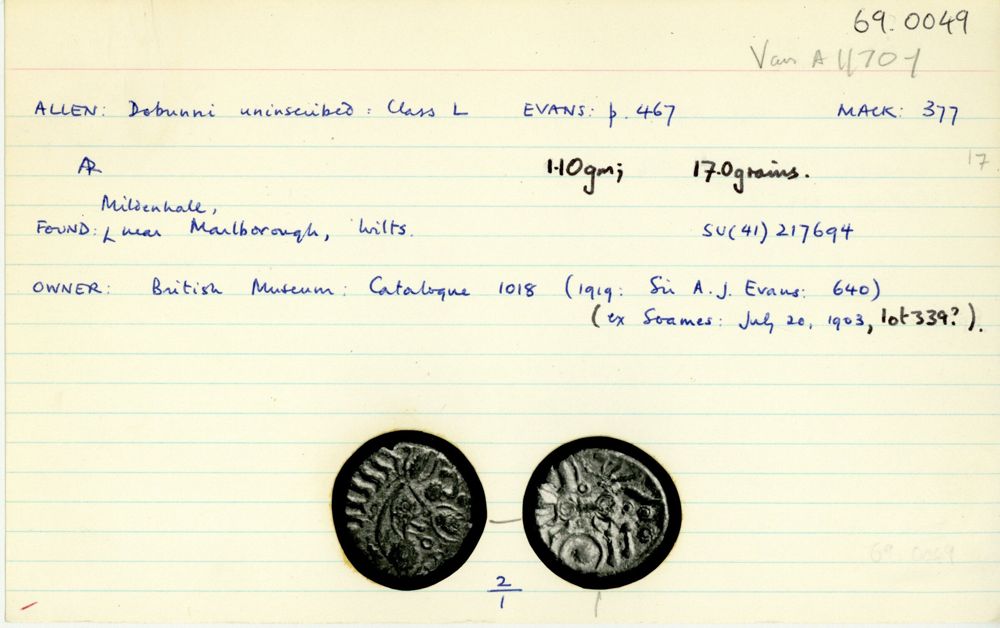 69.0049
Van A 1170-1
ALLEN: Dobunni uninscribed: Class L EVANS: p. 467 MACK: 377
17
AR 1.10gm; 17.0grains.
Mildenhall,
FOUND: near Marlborough, Wilts. SU(41) 217694
OWNER: British Museum: Catalogue 1018 (1919: Sir A.J. Evans: 640)
(ex Soames: July 20, 1903, lot 339?).
69.0049
2
1